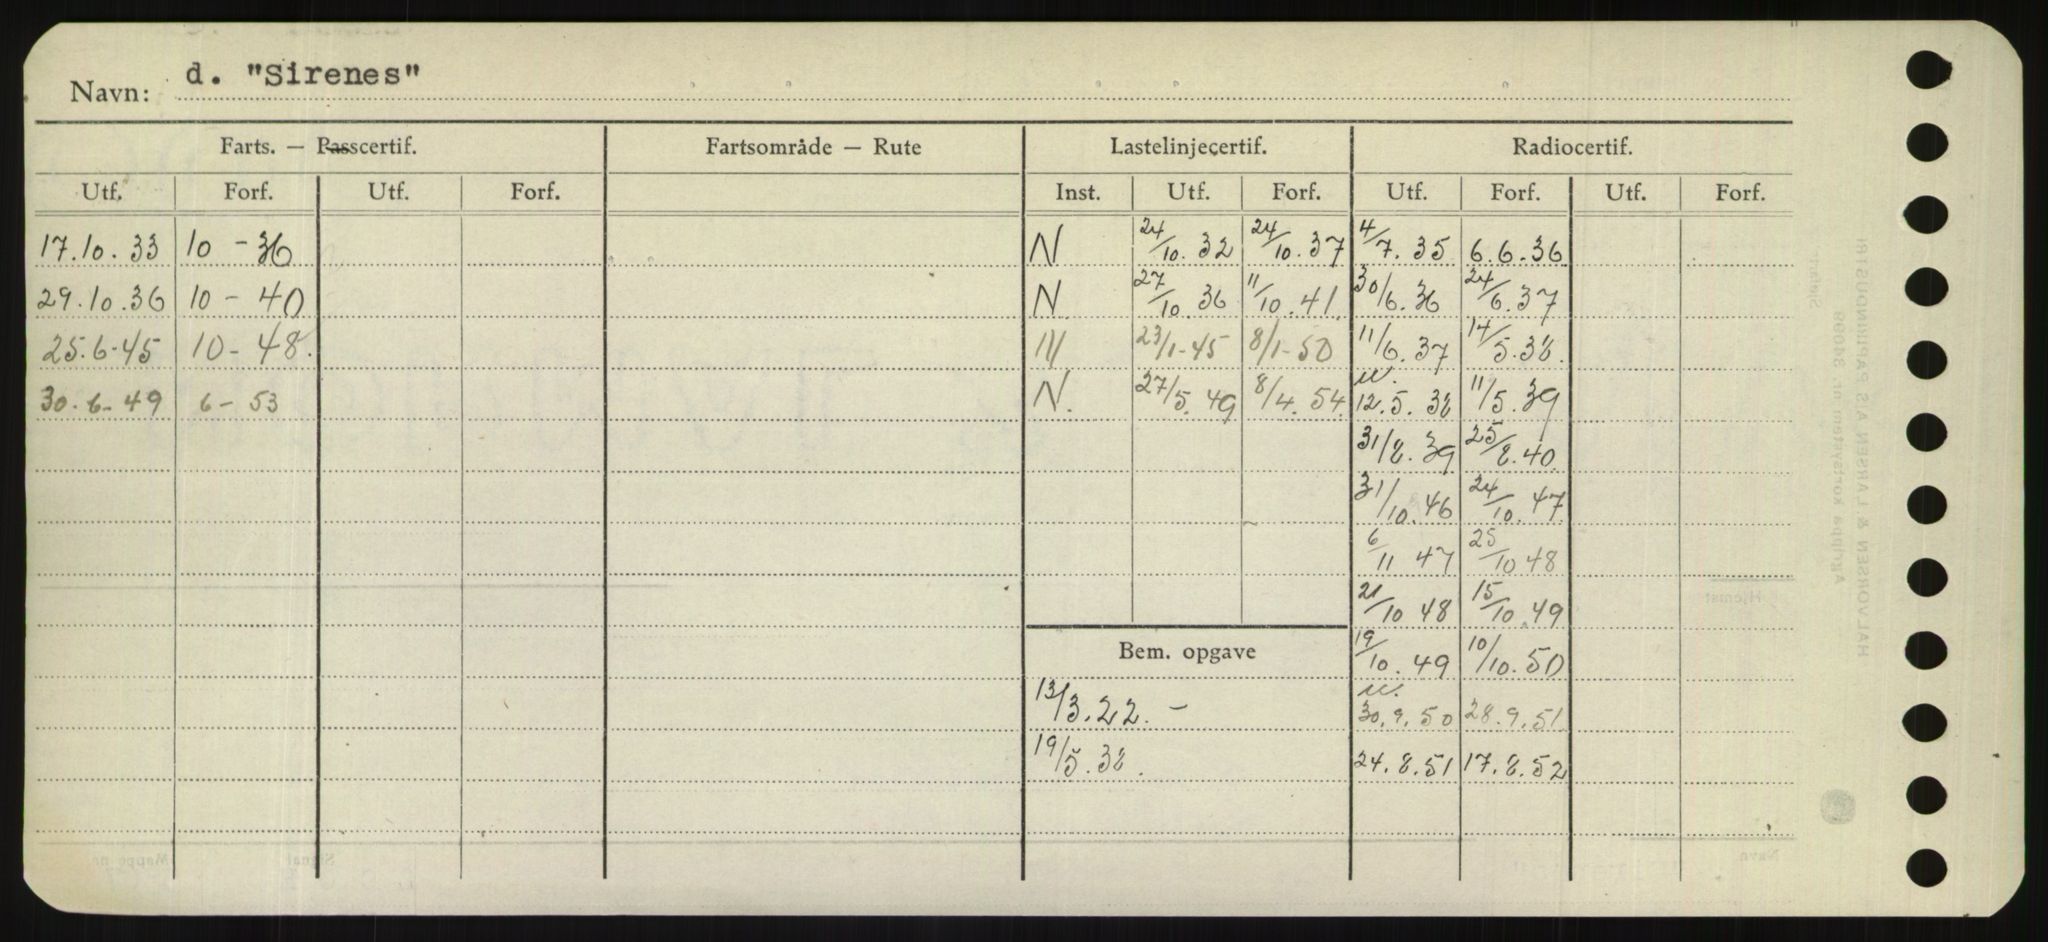 Navn: d. "Sirenes"
Farts. — Passcertif. Fartsområde — Rute Lastelinjecertif. Radiocertif.
Utf. Forf. Utf. Forf. Inst. Utf. Forf. Utf. Forf. Utf. Forf.
17.10.33 10 - 36 N 24/10. 32 24/10. 37 4/7. 35 6.6.36
29.10.36 10 - 40 N 27/10 36 11/10. 41. 30/6. 36 24/6. 37
25.6-45 10 - 48. 23/1-45 8/1-50 11/6. 37 14/5. 38.
30.6-49 6 - 53 N. 27/5. 49 8/4. 54. 12.5.38 11/5. 39
31/8. 39 25/8. 40.
31/10. 46 24/10. 47
6/11 47 25/10 48
21/10 48 15/10. 49
Bem. opgave 19/10. 49 10/10. 50
13/3. 22. - 30.9.50 28.9.51
19/5. 38. 24.8.51 17.8.52
HALVORSEN & LARSEN A.S PAPIRINDUSTRI
Agrippa kortsystem nr. 34099
Hjemst
Mappe nr.
Signal
Navn